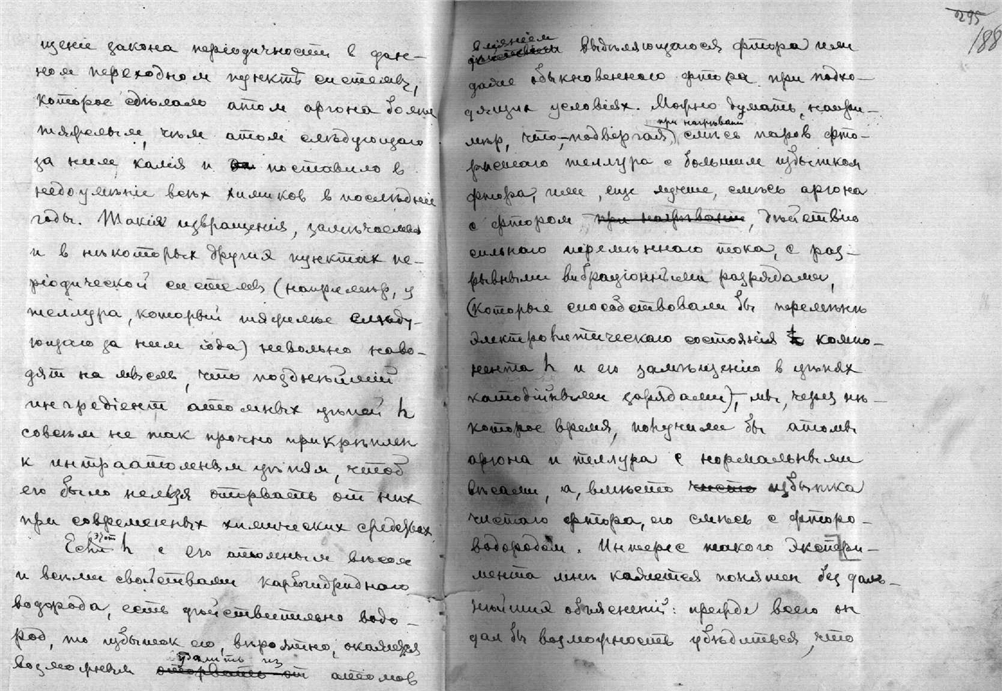 щеніе закона періодичности в дан-
ном переходном пунктѣ системы,
которое сдѣлало атом аргона болѣе
тяжелым, чѣм атом слѣдующаго
за ним калія и поставило в
недоумѣніе всѣх химиков в послѣдніе
годы. Такія извращенія, замѣчаемыя
и в нѣкоторых других пунктах пе-
ріодической системы (напримѣр, у
теллура, который тяжелѣе слѣду-
ющаго за ним іода) невольно наво-
дят на мысль, что позднѣйшій
ингредіент атомных цѣпей h
совсѣм не так прочно прикрѣплен
к интраатомным цѣпям, чтоб
его было нельзя оторвать от них
при современных химических средствах.
Если этот h с его атомным вѣсом
и всѣми свойствами карбогидриднаго
водорода, есть дѣйствительно водо-
род, то избыток его, вѣроятно, окажется
удалить из
возможным оторвать от атомов
295
188
вліяніем
выдѣляющагося фтора или
даже обыкновеннаго фтора при подхо-
дящих условіях. Можно думать, напри-
при нагрѣваніи
мѣр, что, подвергая смѣсь паров фто-
ристаго теллура с большим избытком
фтора, или, еще лучше, смѣсь аргона
с фтором при нагрѣваніи, дѣйствію
сильнаго перемѣннаго тока, с раз-
рывными вибраціонными разрядами,
(которые способствовали бы перемѣнѣ
электровитическаго состоянія компо-
нента h и его замѣщенію в цѣпях
катодійными зарядами), мы, через нѣ-
которое время, получили бы атомы
аргона и теллура с нормальными
вѣсами, а, вмѣсто чисто избытка
чистаго фтора, его смѣсь с фторо-
водородом. Интерес такого экспери-
мента мнѣ кажется понятен без даль-
нѣйших объясненій: прежде всего он
дал бы возможность убѣдиться, что